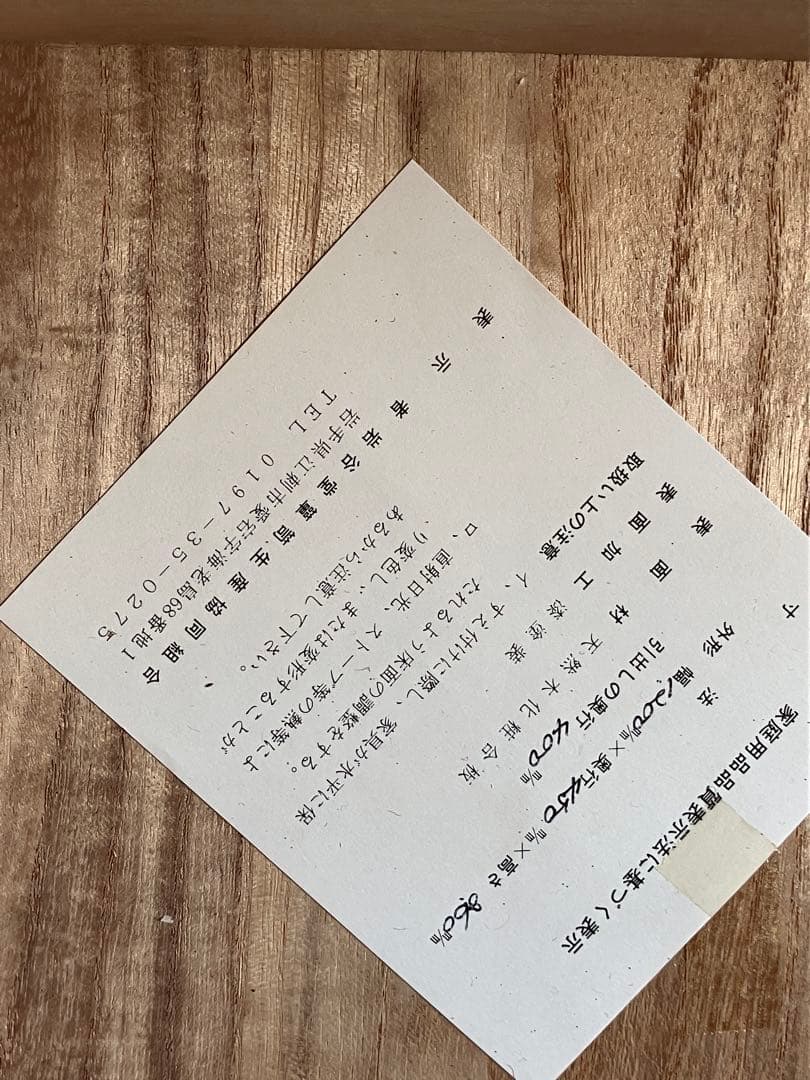 家庭用品品質表示法に基づく表示
寸法
外形 幅1200m/m×奥行450m/m×高さ860m/m
引出しの奥行 400m/m
表面材 天然木化粧合板
表面加工 漆塗装
取扱い上の注意
イ、すえ付けに際し、家具が水平に保
たれるよう床面の調整をする。
ロ、直射日光、ストーブ等の熱等によ
り変色し、または変形することが
あるから注意して下さい。
表示者 岩谷堂簞笥生産協同組合
岩手県江刺市愛宕字海老島68番地1
TEL 0197-35-0275